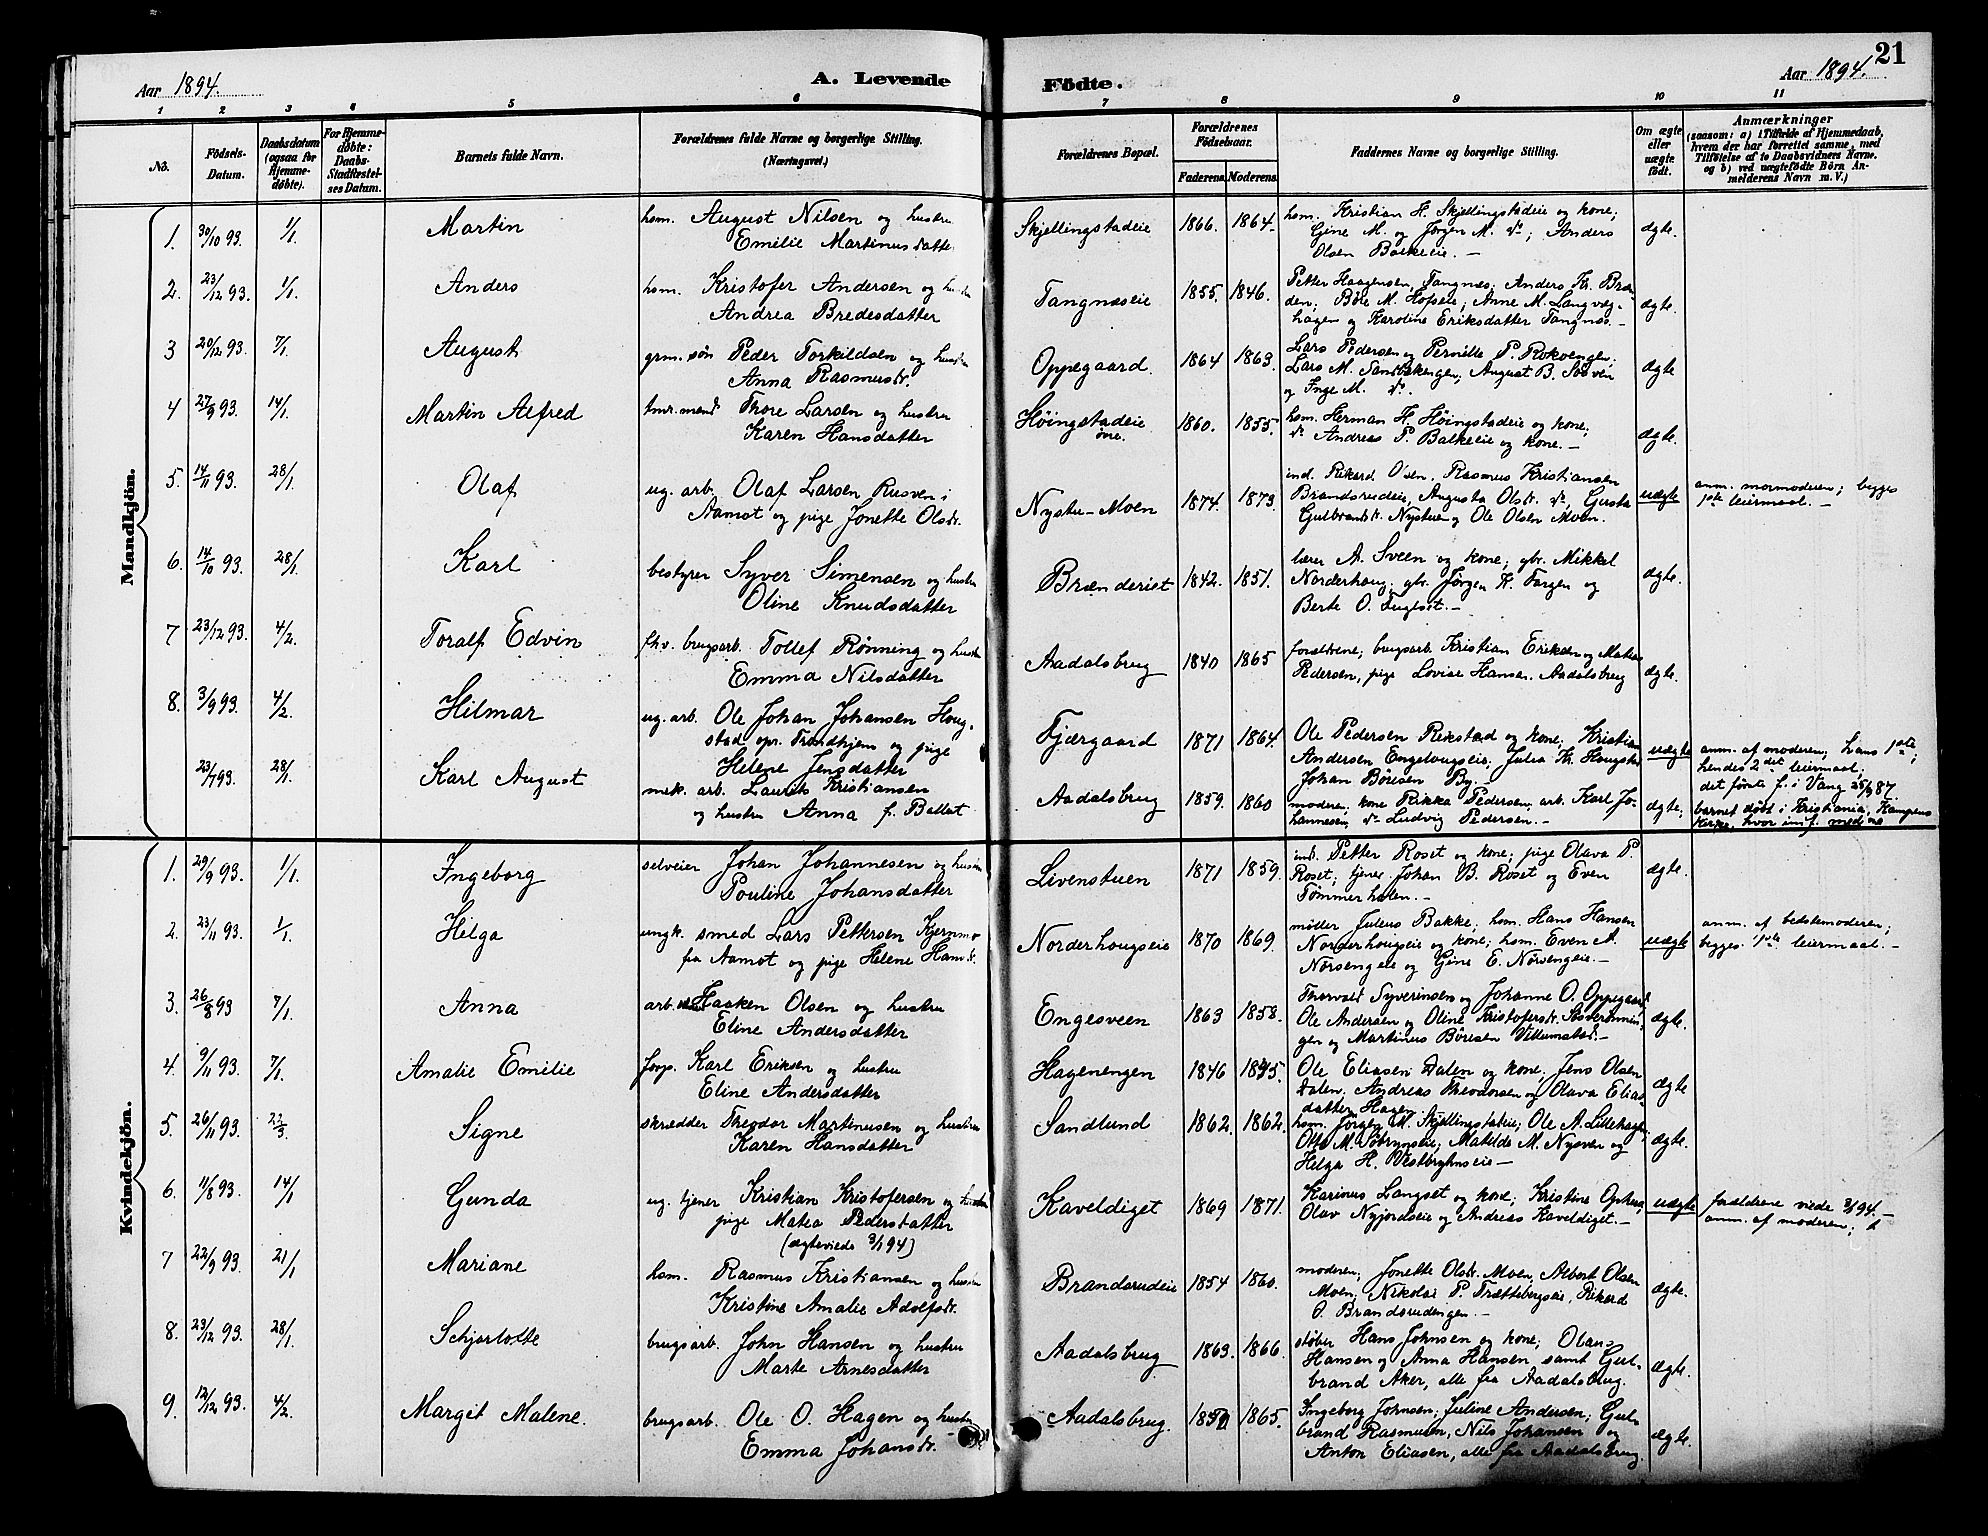 21
Aar 1894.
A. Levende
Födte.
Aar 1894.
1 2 3 4 5 6 7 8 9 10 11
No.
Födsels-Datum.
Daabsdatum (ogsaa for Hjemme-döbte).
For Hjemme-döbte: Daabs-Stadfæstel-ses Datum.
Barnets fulde Navn.
Forældrenes fulde Navne og borgerlige Stilling. (Næringsvei.)
Forældrenes Bopæl.
Forældrenes Födselsaar.
Faderens. Moderens.
Faddernes Navne og borgerlige Stilling.
Om ægte eller uægte födt.
Anmærkninger
(saasom: a) i Tilfælde af Hjemmedaab,
hvem der har forrettet samme, med
Tilföielse af to Daabsvidners Navne.
og b) ved uægtefödte Börn An-
melderens Navn m. V.)
Mandkjön.
1. 30/10 93. 1/1. Martin
hsm. August Nilsen og hustru
Emilie Martinusdatter
Skjellingstadeie 1866. 1864.
hsm. Kristian H. Skjellingstadeie og kone;
Gine M. og Jørgen M. do; Anders
Olsen Balkeie. —
ægte.
2. 23/12 93. 1/1. Anders
hsm. Kristofer Andersen og hustru
Andrea Bredesdatter
Tangnæseie 1855. 1846.
Petter Haagensen, Tangnæs; Anders Kr. Bræn-
den; M. Hofseie; Anne M. Langvæg-
hagen og Karoline Eriksdatter Tangnæs. —
ægte.
3 20/12 93. 7/1. August
grm. søn Peder Torkildsen og hustru
Anna Rasmusdr.
Oppegaard. 1864 1863.
Lars Pedersen og Pernille P. Rokvengen;
Lars M. Sandbakengen; August B.
og Inge M. do.
ægte
4 27/9 93. 14/1. Martin Alfred
tmr.mand Thore Larsen og hustru
Karen Hansdatter
Høingstadeie
øvre. 1860. 1855.
hsm. Herman H. Høingstadeie og kone;
do Andreas P. Balkeie og kone. —
ægte.
5. 14/11 93. 28/1. Olaf
ug. arb. Olaf Larsen Rusven i
Aamot og pige Jonette Olsdr.
Nystu-Moen 1874. 1873.
ind. Rikard Olsen. Rasmus Kristiansen
Brandsrudeie, Augusta Olsdr. do, Gusta
Gulbrandsdr. Nystuen og Ole Olsen Moen.
uægte
anm. mormoderen; begges
1ste leiermaal. —
6. 14/10 93. 28/1. Karl
bestyrer Syver Simensen og hustru
Oline Knudsdatter
Brænderiet 1842. 1851.
lærer A. Sveen og kone; gbr. Mikkel
Norderhoug; gbr. Jørgen K. Torgen og
Berte O. —
ægte.
7 23/12 93. 4/2. Toralf Edvin
fhv. brugsarb. Tollef Rønning og hustru
Emma Nilsdatter
Aadalsbrug 1840 1865
forældrene; brugsarb. Kristian Eriksen og Matias
Pedersen, pige Lovise Hansen. Aadalsbrug
ægte.
8. 3/9 93. 4/2. Hilmar
ug. arb. Ole Johan Johansen Houg-
stad opr. Trondhjem og pige
Helene Jensdatter
Fjærgaard 1871 1864.
Ole Pedersen Rekstad og kone; Kristian
Andersen Engelougseie, Julia Kr. Hougstad
Johan Böresen By.
uægte
anm. af moderen; hans 1ste;
hendes 2det leiermaal;
det første f. i Vang 25/9 87.
23/7 93. 28/1. Karl August
mek. arb. Laurits Kristiansen
og hustru Anna f. Ballat
Aadalsbrug 1859. 1860
moderen; kone Rikka Pedersen, arb. Karl Jo-
hannesen, do Ludvig Pedersen. —
ægte;
barnet døbt i Kristiania, Kampens
kirke, hvor indf. med no
Kvindekjön.
1. 29/9 93. 1/1. Ingeborg
selveier Johan Johannesen og hustru
Pouline Johansdatter
Livenstuen 1871 1859.
ind. Petter Roset og kone; pige Olava P.
Roset; tjener Johan B. Roset og Even
Tømmerholen. —
ægte.
2. 23/11 93. 1/1. Helga
ungk. smed Lars Pettersen Kjernmo
fra Aamot og pige Helene Hansdr.
Norderhougseie 1870 1869.
møller Julius Bakke; hsm. Hans Hansen
Norderhougseie og kone; hsm. Even A.
Nörsengeie og Gine E. Nörsengeie. —
uægte
anm. af bedstemoderen;
begges 1ste leiermaal. —
3. 26/8 93 7/1. Anna
arb. Haaken Olsen og hustru
Eline Andersdatter
Engesveen 1863 1858.
Thorvald Syverinsen og Johanne O. Oppegaard
Ole Andersen og Oline Kristofersdr.
gen og Martinus Böresen Villumstad. —
ægte.
4. 9/11 93. 7/1. Amalie Emilie
forp. Karl Eriksen og hustru
Eline Andersdatter
Hagenengen 1846 1855.
Ole Eliasen Dalen og kone; Jens Olsen
Dalen, Andreas Theodorsen og Olava Elias-
datter Hagen.
ægte
5. 26/11 93. Signe
skrædder Theodor Martinusen og hustru
Karen Hansdatter
Sandlund 1862. 1862.
hsm. Jørgen M. Skjellingstadeie; Ole A. Lillehagen;
Otto M. Matilde M. Nysveen og
Helga H. —
ægte.
6. 11/8 93. 14/1 Gunda
ug. tjener Kristian Kristofersen og hustru
pige Matea Pedersdatter
(ægteviede 3/1 94)
Kaveldiget 1869 1871.
Karinus Langset og kone; Kristine Ophus;
Olav Nyjordseie og Andreas Kaveldiget. —
uægte
forældrene viede 3/1 94. —
anm. af moderen;
7 22/9 93. 21/1 Mariane
hsm. Rasmus Kristiansen og hustru
Kristine Amalie Adolfsdr.
Brandsrudeie 1854 1860.
moderen; Jonette Olsdr. Moen, Albert Olsen
Moen, Nikolai P. Trættebergseie, Rikard
O. Brandsrudengen. —
ægte.
8. 23/12 93. 28/1. Schjarlotte
brugsarb. John Hansen og hustru
Marte Arnesdatter
Aadalsbrug 1863. 1866.
støber Hans Johnsen og kone; Olaus
Hansen og Anna Hansen, samt Gul-
brand Aker, alle fra Aadalsbrug.
ægte.
9. 12/12 93. 4/2. Margit Malene.
brugsarb. Ole O. Hagen og hustru
Emma Johansdr.
Aadalsbrug. 1865.
Ingeborg Johnsen; Juline Andersen; Gul-
brand Rasmusen, Nils Johansen og
Anton Eliasen, alle fra Aadalsbrug.
ægte.